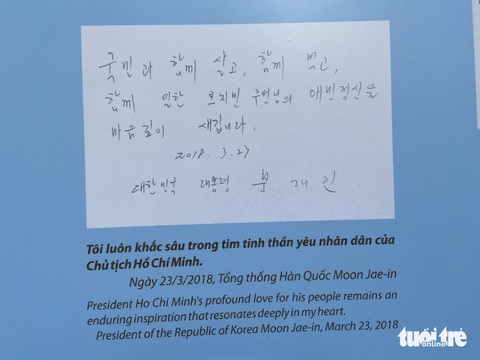 국민과 함께 살고, 함께 먹고,
함께 일한 호치민 주석님의 애민정신을
마음깊이 새깁니다.
2018. 3. 23
대한민국 대통령 문 재 인
Tôi luôn khắc sâu trong tim tinh thần yêu nhân dân của
Chủ tịch Hồ Chí Minh.
Ngày 23/3/2018, Tổng thống Hàn Quốc Moon Jae-in
President Ho Chi Minh's profound love for his people remains an
enduring inspiration that resonates deeply in my heart.
President of the Republic of Korea Moon Jae-in, March 23, 2018
tuổi trẻ
online